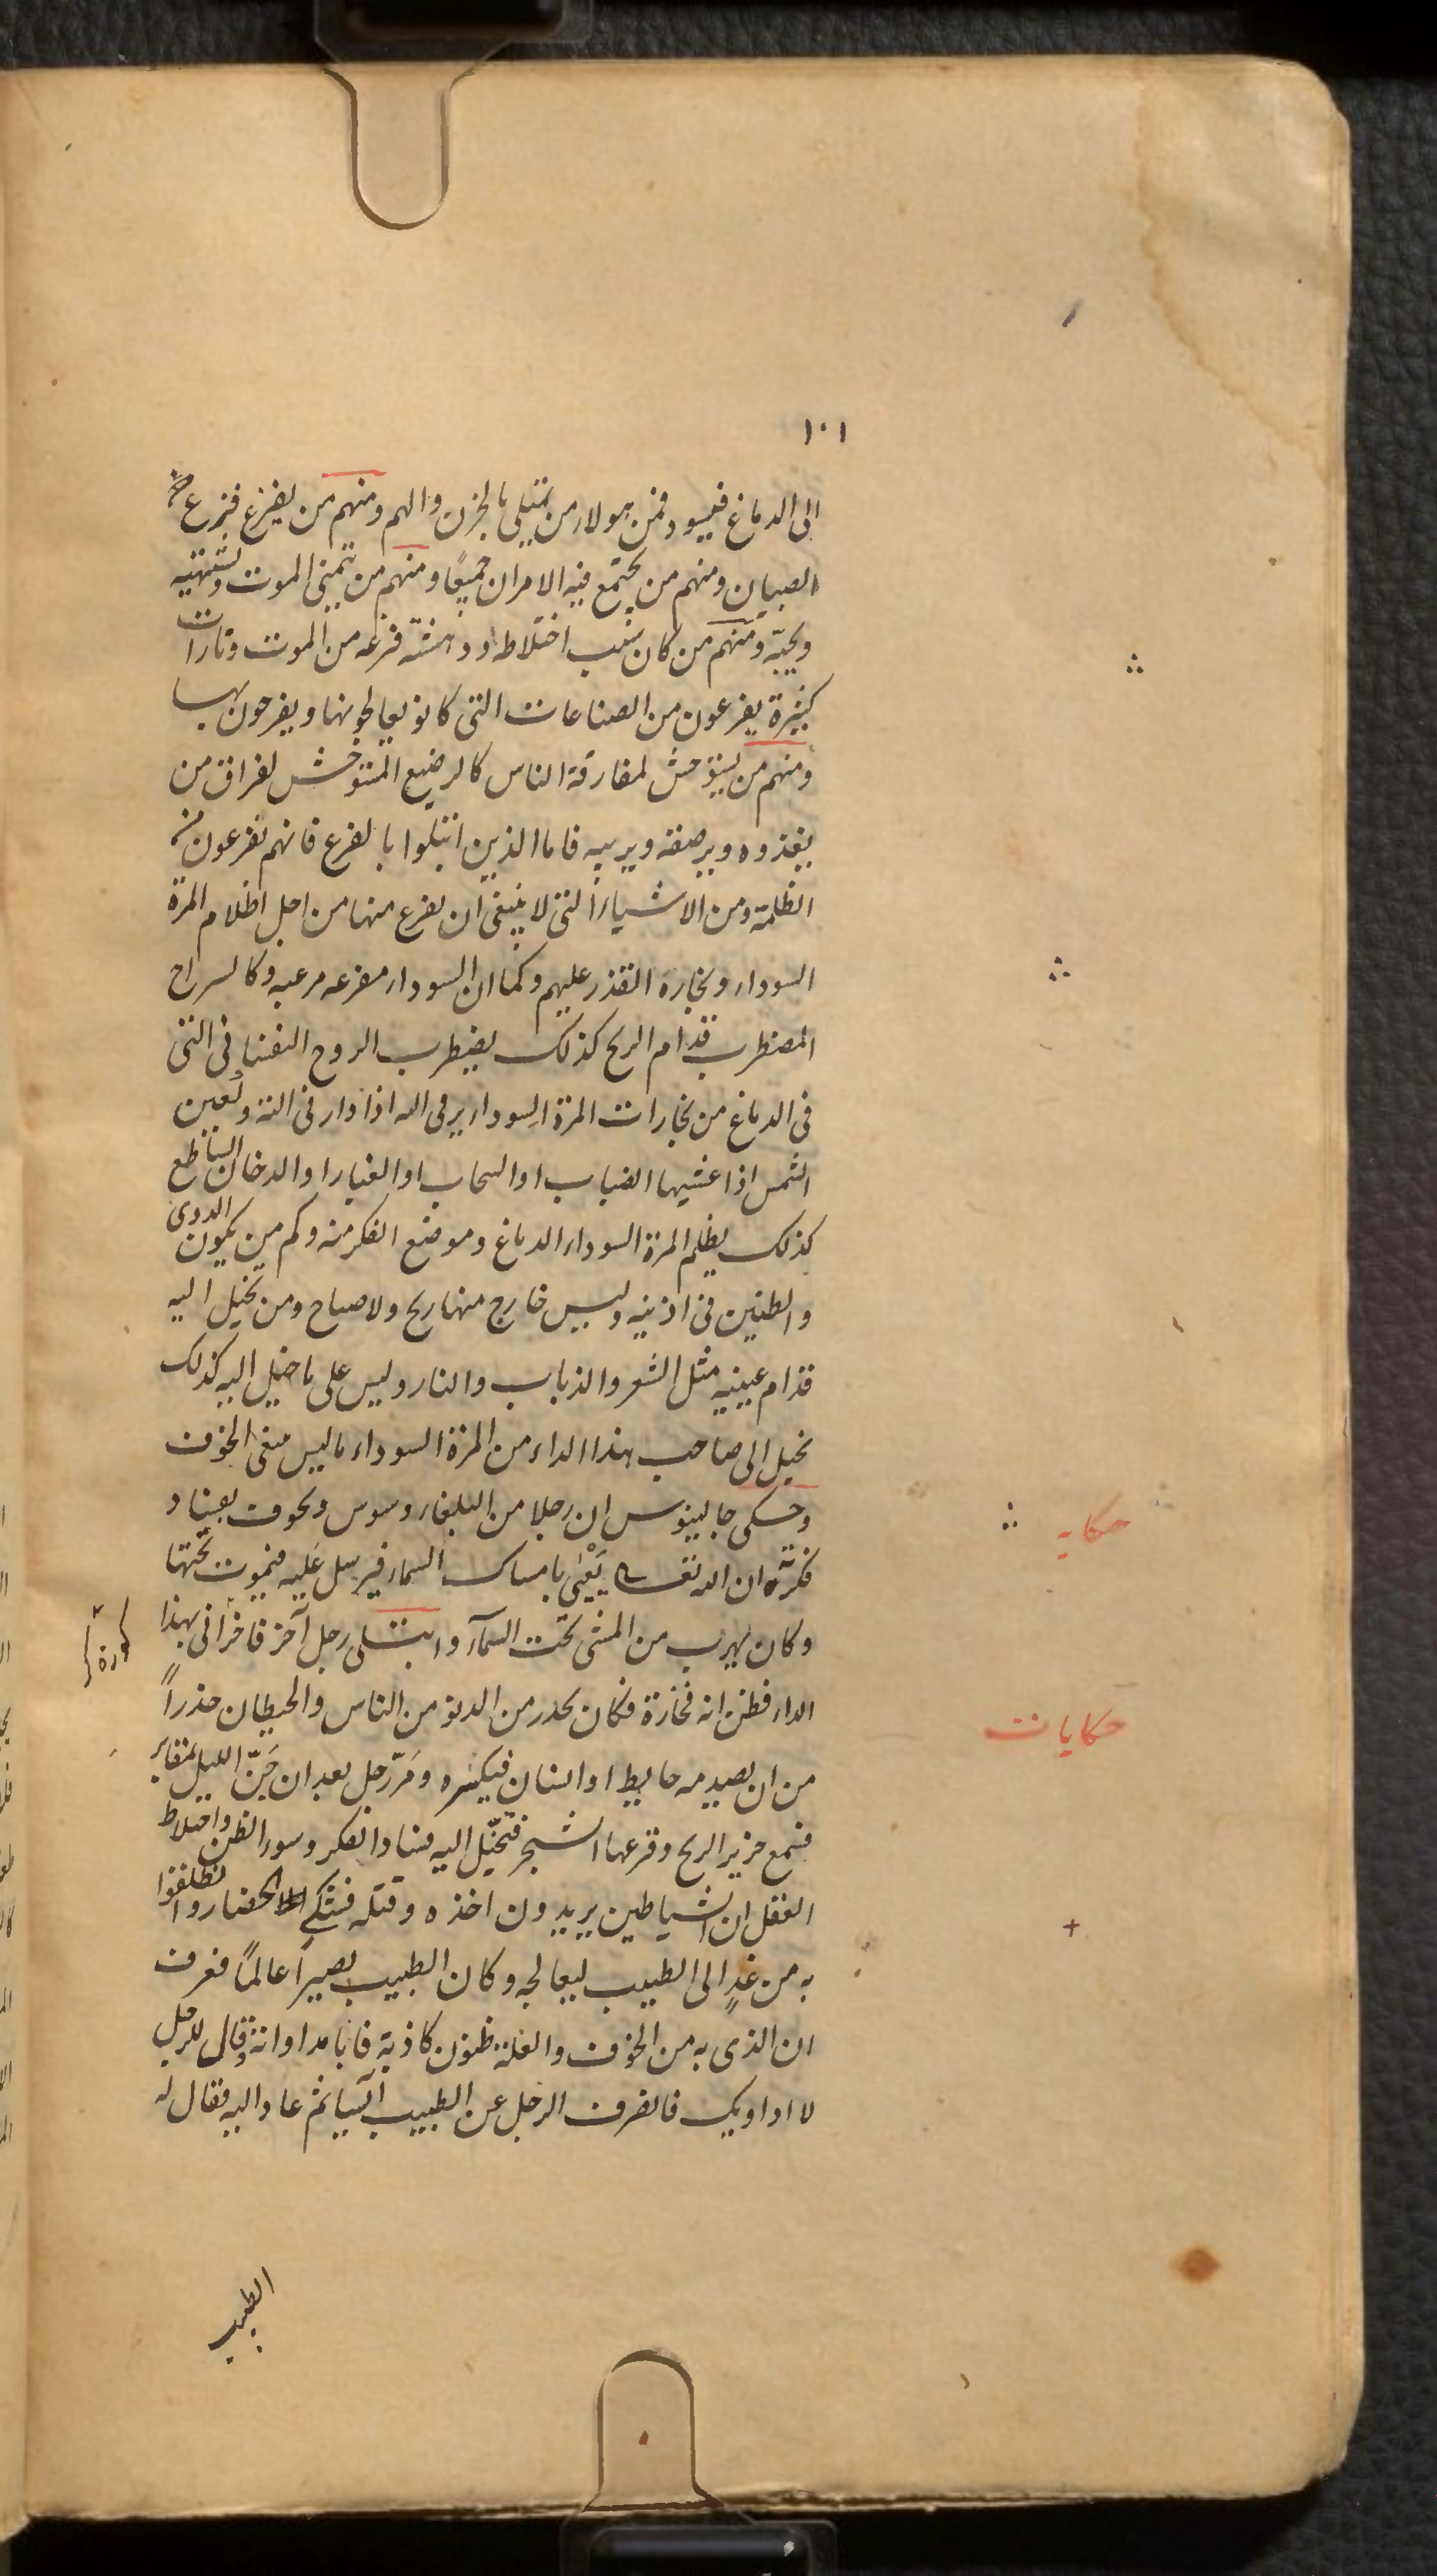 ١٠١
الى الدماغ فيسود فمن هولاء من يبتلى بالحزن والهم ومنهم من يفزع فزع
الصبيان ومنهم من يجتمع فيه الامران جميعًا ومنهم من يتمنى الموت ويشتهيه
ويحبّه ومنهم من كان سبب اختلاطه ودهشته فزعه من الموت وتارات
كثيرة يفزعون من الصناعات التى كانو يعالجونها ويفرحون بها
ومنهم من يستوحش لمفارقة الناس كالرضيع المستوحش لفراق من
يغذوه ويرضعه ويربيه فاما الذين ابتلوا بالفزع فانهم يفزعون من
الظلمة ومن الاشياء التى لا ينبغى ان يفزع منها من اجل اظلام المرة
السوداء وبخاره القذر عليهم وكما ان السوداء مفزعه مرعبه وكالسراج
المضطرب قدام الريح كذلك يضطرب الروح النفسانى التى
فى الدماغ من بخارات المرة السوداء
الشمس اذا غشيها الضباب او السحاب او الغبار او الدخان الساطع
كذلك يظلم المرة السوداء الدماغ وموضع الفكر منه وكم من يكون الدوى
والطنين فى اذنيه وليس خارج منها ريح ولا صياح ومن يخيل اليه
قدام عينيه مثل الشعر والذباب والنار وليس على ما خيل اليه كذلك
يخيل الى صاحب هذا الداء من المرة السوداء ما ليس الخوف
وحكى جالينوس ان رجلا من البلغاء وسوس وتخوف بفساد
فكرته ان الله تعالى يَعْيَى بامساك السماء فيرسل عليه فيموت تحتها
وكان يهرب من المشى تحت السمآء وابتلى رجل آخر فاخرانى بهذا
الداء فظن انه فخارة فكان يحذر من الدنو من الناس والحيطان حذراً
من ان يصيدمه حايط او انسان فيكسره ومَرّ رجل بعد ان جَنّ الليل بمقابر
فسمع خرير الريح وقرعها الشجر فتخيّل اليه فساد الفكر وسوء الظن واختلاط
العقل ان الشياطين يريدون اخذه وقتله فشكى الحضار وانطلقوا
به من غدٍ الى الطبيب ليعالجه وكان الطبيب بصيراً عالمًا فعرف
ان الذى به من الخوف والعلة ظنون كاذبة فابا مداواته وقال للرجل
لا اداويك فانصرف الرجل عن الطبيب آيسا ثم عاد اليه فقال له
حكايه
حكايات
الطبيب